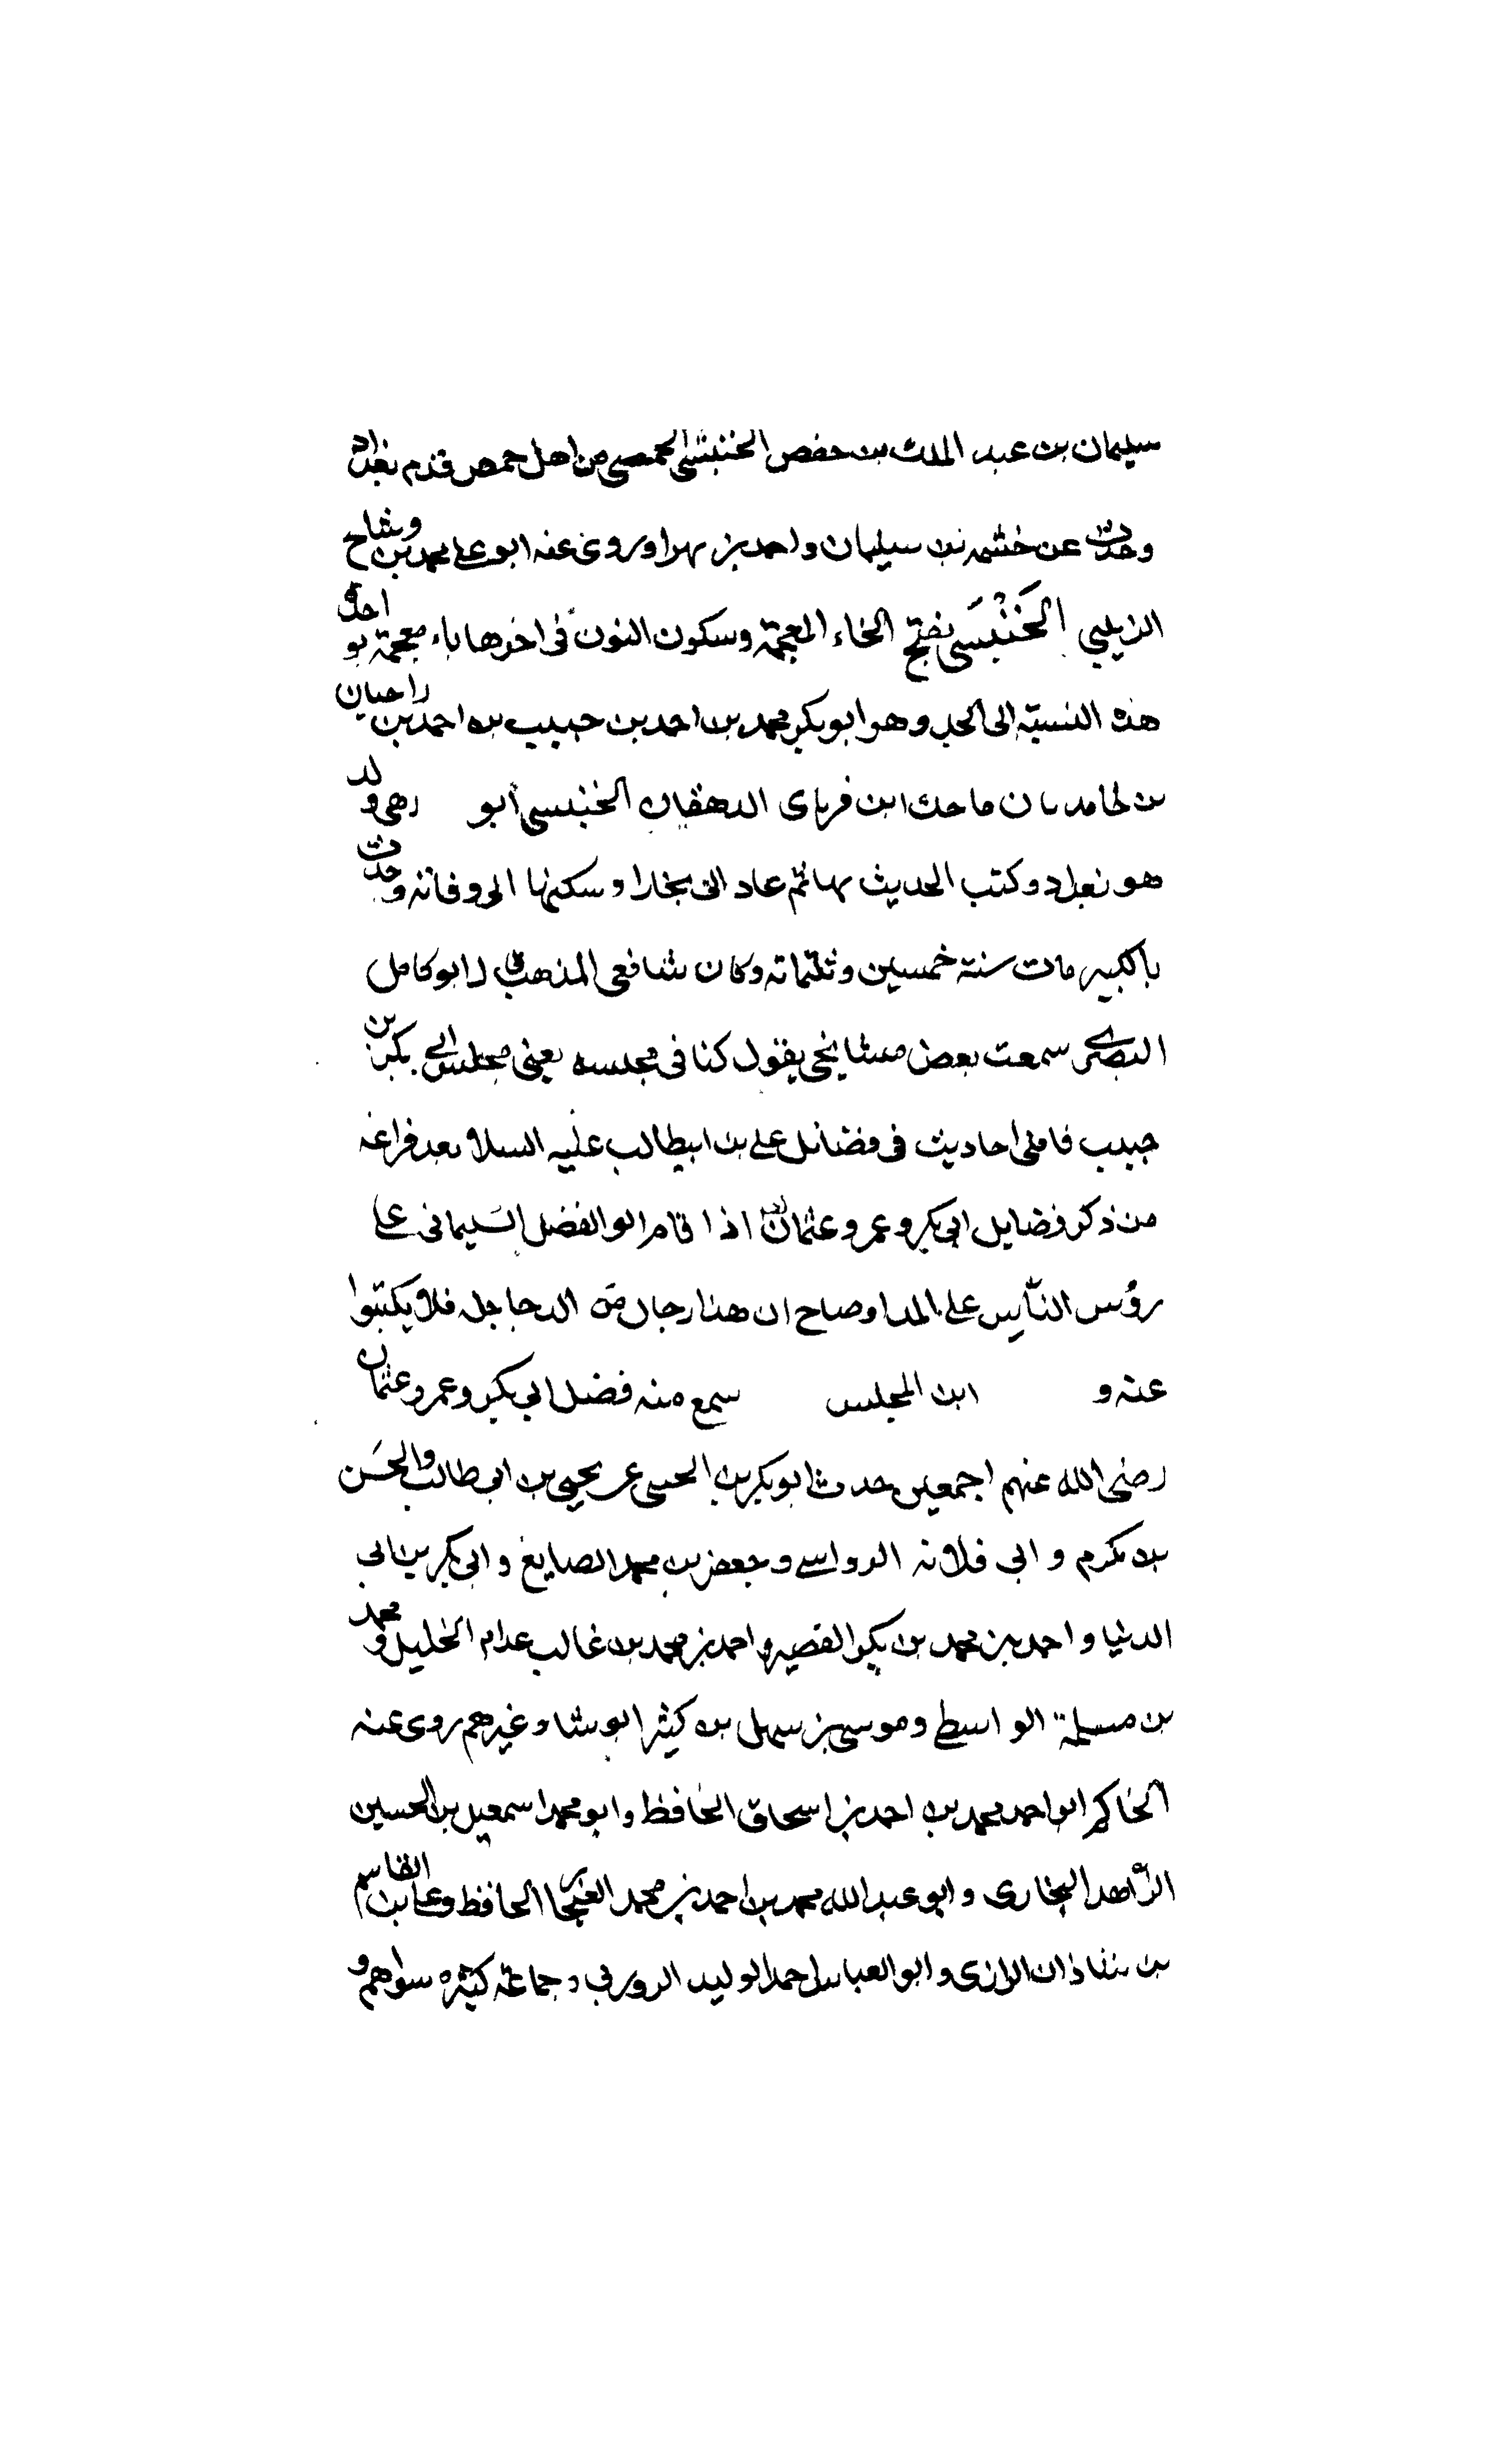 سليمان بن عبد الملك بن حفص الخنبشي الحمصي من اهل حمص قدم بغداد
وحدث عن خشمه بن سليمان واحمد بن بهرا وروى عنه ابو علي محمد بن وشاح
الزيلبي الخَنْبَسَى بفتح الخاء المعجمة وسكون النون في اخرها باء معجمة بواحدة
هذه النسبة الى الجد وهو ابو بكر محمد بن احمد بن حبيب بن احمد بن راحيان
بن حامد ابن فرباى الدهقان الخنبسي ابو ولد
هو ببغداد وكتب الحديث بها ثم عاد الى بخارا وسكنها الى وفاته وحدث
بالكبير مات سنة خمسين وثلثمائة وكان شافعي المذهب قال ابو كامل
البصري سمعت بعض مشايخي يقول كنا في مجلسه يعني مجلس ابي بكر بن
حبيب فاملى احاديث في فضائل علي بن ابيطالب عليه السلام بعد فراغه
من ذكر فضايل ابي بكر وعمر وعثمان اذا قام ابو الفضل السليماني على
رؤس النّاس على الملا وصاح ان هذا رجال من الدجاجلة فلا يكتبوا
عنه و ابن المجلس سمع منه فضل ابي بكر وعمر وعثمان
رضى الله عنهم اجمعين حدث ابو بكر بن الحسى عن يحيى بن ابي طالب والحسن
بن مكرم و ابى قلابه الرواسى وجعفر بن محمد الصايغ و ابى بكر بن ابي
الدنيا و احمد بن محمد بن بكر القصير واحمد بن محمد بن غالب غلام الخليل ومحمد
بن مسلمة الواسطي وموسى بن سهل بن كثير الوشا وغيرهم روى عنه
الحاكم ابو احمد محمد بن احمد بن اسحاق الحافظ وابو محمد اسمعيل بن الحسين
الزّاهد البخارى و ابو عبد الله محمد بن احمد بن محمد الغنجار الحافظ وعلي بن القاسم
بن شاذان الرازى و ابو العباس احمد الوليد الزوربي وجماعة كثيره سواهم و